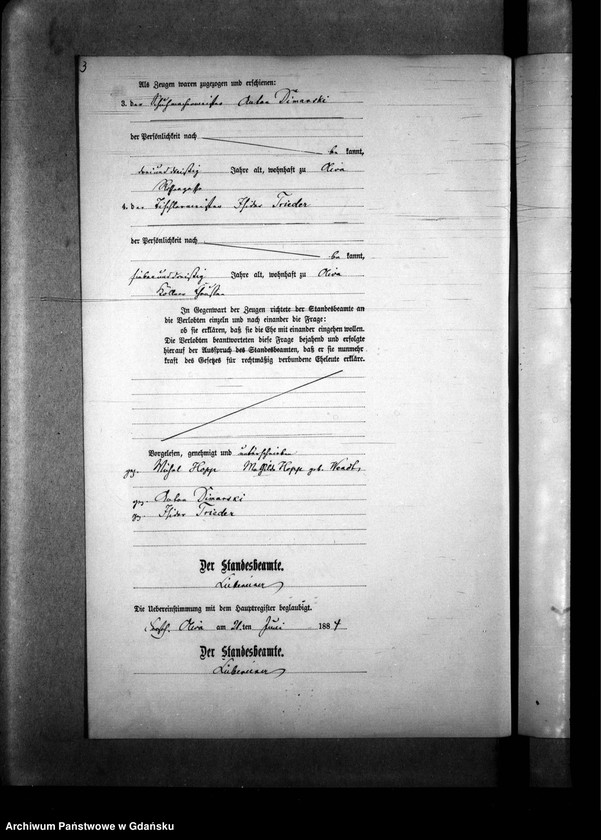 3
Als Zeugen waren zugezogen und erschienen:
3. der Schuhmachermeister Anton Dimanski
der Persönlichkeit nach
be kannt,
dreiunddreißig Jahre alt, wohnhaft zu Oliva
4. der Tischlermeister Isidor Trieder
der Persönlichkeit nach
be kannt,
siebenunddreißig Jahre alt, wohnhaft zu Oliva
In Gegenwart der Zeugen richtete der Standesbeamte an
die Verlobten einzeln und nach einander die Frage:
ob sie erklären, daß sie die Ehe mit einander eingehen wollen.
Die Verlobten beantworteten diese Frage bejahend und erfolgte
hierauf der Ausspruch des Standesbeamten, daß er sie nunmehr
kraft des Gesetzes für rechtmäßig verbundene Eheleute erkläre.
Vorgelesen, genehmigt und unterschrieben
gez. Hoppe Mathilde Hoppe geb. Wendt,
gez. Anton Dimanski
gz. Isidor Trieder
Der Standesbeamte.
Die Uebereinstimmung mit dem Hauptregister beglaubigt.
Oliva am 21.ten Juni 1884
Der Standesbeamte.
Archiwum Państwowe w Gdańsku